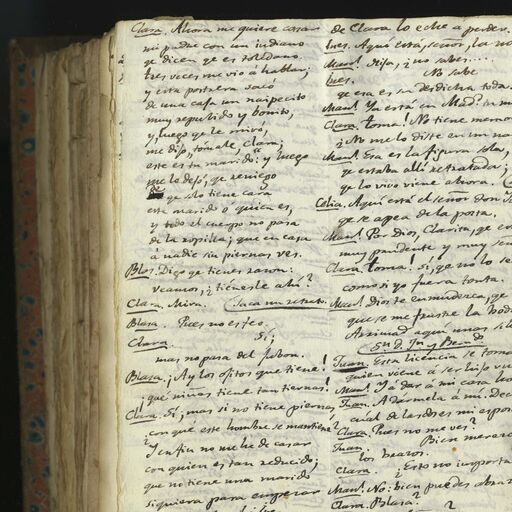 Clara. Ahora me quiere casar
mi padre con un indiano
qe dicen qe es toledano.
tres veces me vió á hablar,
y esta postrera sacó
de una caja un naipecito
muy repulido y bonito,
y luego qe le miró,
me dijo, tómale, Clara;
este es tu marido: y luego
me le dejó, qe reniego
qe solo tiene cara
este marido ó quien es,
y todo el cuerpo no pasa
de la ropilla; que en casa
á nadie sin piernas ves.
Blas. Digo qe tienes razon:
veamos, ¿tienesle ahí?
Clara. Mira. (Saca un retrato.
Blasa. Pues no es feo.
Clara. Sí;
mas no pasa del jubon.
Blasa. ¡Ay los ojitos que tiene!
¡qué niñas tan tiernas!
Clara. Sí; mas si no tiene piernas,
con que este hombre se mantiene?
Y en fin no me he de casar
con quien es tan reducido;
que no tiene una marido
siquiera para empezar
de Clara lo eche a perder.
Ines. Aquí está, señor, la no
Man! Hija, ¿no sabes....
Ines. No sabe
qe esa es su desdicha toda.
Man! Ya está en Mad.
Clara. Toma! ¿No tiene
¿No me lo diste en un na
Man! Esa es la figura sola,
qe estaba allí retratada;
qe lo vivo viene ahora.
Celia. Aquí está el señor don
qe se apea de la posta.
Man! Por Dios, Clarita, qe
muy prudente y muy
Clara. Toma! Sí, qe no lo se
como si yo fuera tonta.
Man! Dios te enmudezca, qe
que se me frustre la bod
Arrimad aquí unas sil
(Sn D. Jn y Bern
Juan. Esta licencia se toma
quien viene á ser hijo vu
Man! Y á dar á mi casa ho
Juan. A dármela á mí. Dec
cual de las dos es mi espo
Clara. Pues no me ves?
Juan. Bien merezc
los brazos.
Clara. ¿Esto no importa
Man! No: bien puedes abra
Clara. Blasa?